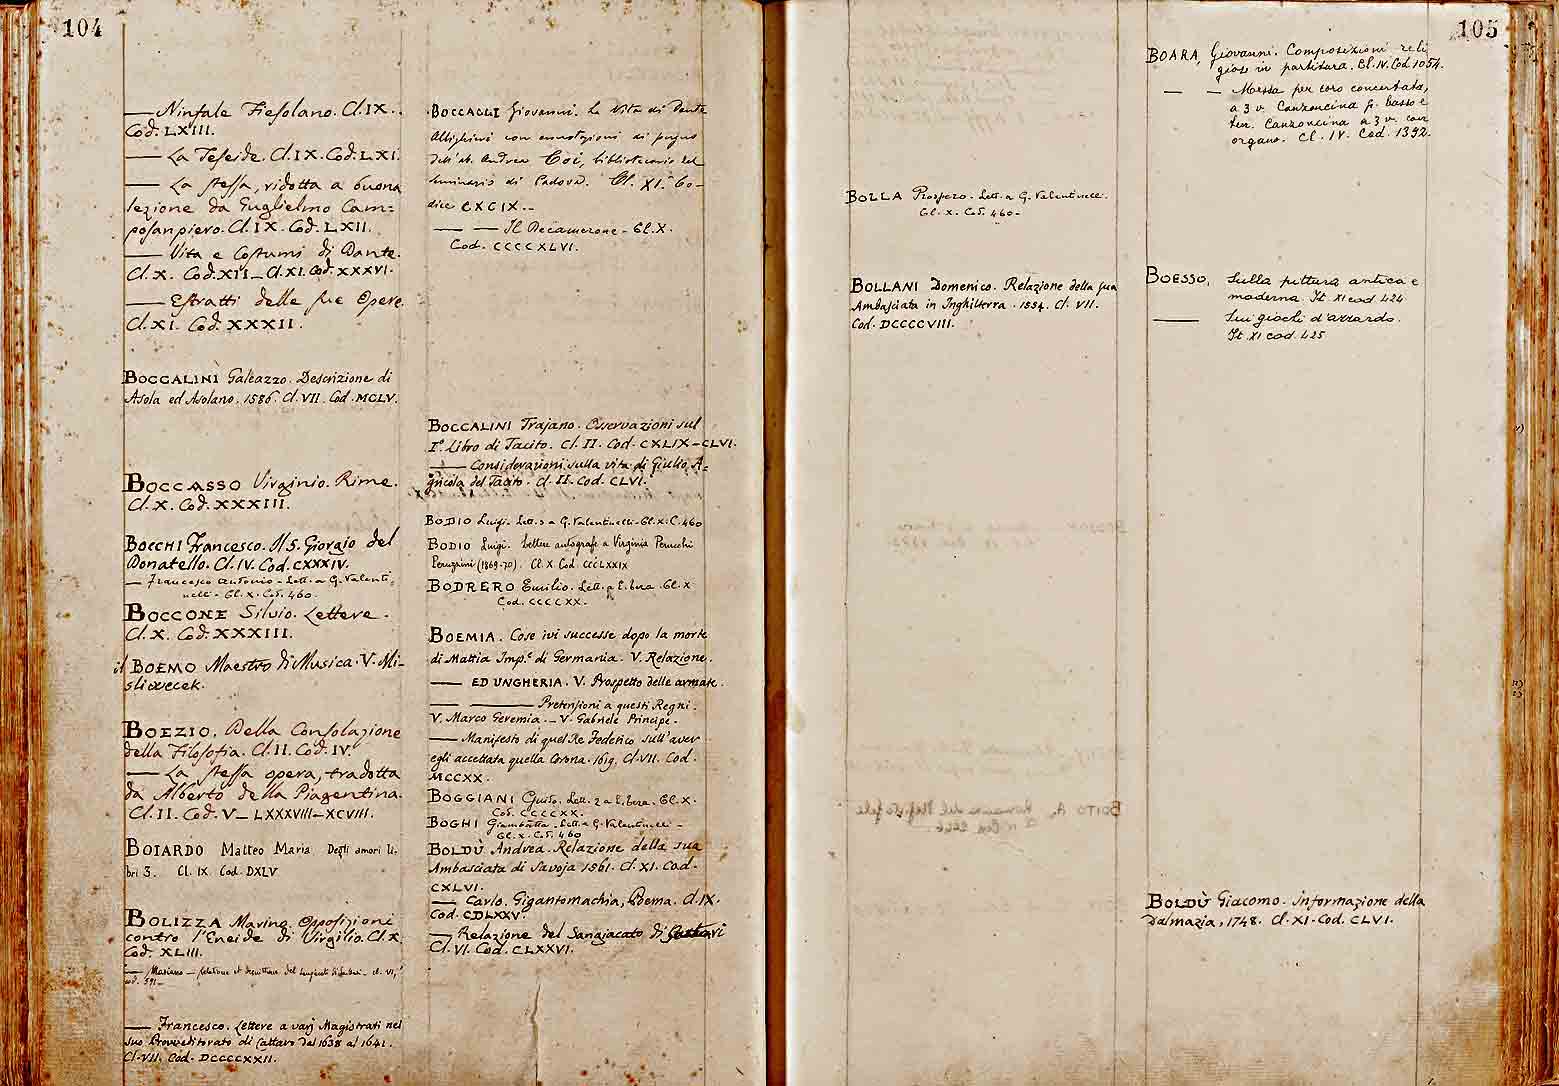 104
— Ninfale Fiesolano. Cl. IX.
Cod. LXIII.
— La Teseide. Cl. IX. Cod. LXI.
— La stessa, ridotta a buona
lezione da Guglielmo Cam=
posanpiero. Cl. IX. Cod. LXII.
— Vita e Costumi di Dante.
Cl. X. Cod. XII — Cl. XI. Cod. XXXVI.
— Estratti delle sue Opere
Cl. XI. Cod. XXXII.
BOCCALINI Galeazzo. Descrizione di
Asola ed Asolano. 1586. Cl. VII. Cod. MCLV.
BOCCASSO Virginio. Rime.
Cl. X. Cod. XXXIII.
BOCCHI Francesco. Il S. Giorgio del
Donatello. Cl. IV. Cod. CXXXIV.
— Francesco Antonio - Lett. a G. Valenti-
nelli - Cl. X. Cod. 460.
BOCCONE Silvio. Lettere.
Cl. X. Cod. XXXIII.
il BOEMO Maestro di Musica. V. Mi-
sliwecek.
BOEZIO. Della Consolazione
della Filosofia. Cl. II. Cod. IV.
— La stessa opera, tradotta
da Alberto della Piagentina.
Cl. II. Cod. V — LXXXVIII — XCVIII.
BOIARDO Matteo Maria Degli amori li-
bri 3. Cl. IX. Cod. DXLV
BOLIZZA Marino Opposizioni
contro l'Eneide di Virgilio. Cl. X.
Cod. XLIII.
— Mariano — Relatione et descrittione del Cl. VI,
cod. 391 —
— Francesco. Lettere a varj Magistrati nel
suo Provveditorato di Cattaro dal 1638 al 1641.
Cl. VII. Cod. DCCCCXXII.
BOCCAGLI Giovanni. La Vita di Dante
Allighieri con annotazioni di pugno
dell'ab. Andrea Coi, bibliotecario del
Seminario di Padova. Cl. XI. Co-
dice CXCIX —
— — Il Decamerone - Cl. X.
Cod. CCCCXLVI.
BOCCALINI Trajano. Osservazioni sul
I.º Libro di Tacito. Cl. II. Cod. CXLIX — CLVI.
— Considerazioni sulla vita di Giulio A=
gricola del Tacito. Cl. II. Cod. CLVI.
BODIO Luigi. Lett. 2 a G. Valentinelli - Cl. X. C. 460
BODIO Luigi. Lettere autografe a Virginia Perucchi
Peruzzini (1869-70). Cl. X Cod. CCCLXXIX
BODRERO Emilio. Lett. a E. Teza. Cl. X
Cod. CCCCXX.
BOEMIA. Cose ivi successe dopo la morte
di Mattia Imp.e di Germania. V. Relazione.
— ED UNGHERIA. V. Prospetto delle armate.
— — Pretensioni a questi Regni.
V. Marco Geremia. — V. Gabriele Principe.
— Manifesto di quel Re Federico sull'aver
egli accettata quella Corona. 1619. Cl. VII. Cod.
MCCXX.
BOGGIANI Guido. Lett. 2 a E. Teza. Cl. X.
Cod. CCCCXX.
BOGHI Giambatta. Lett. a G. Valentinelli -
Cl. X. Cod. 460
BOLDÙ Andrea. Relazione della sua
Ambasciata di Savoja 1561. Cl. XI. Cod.
CXLVI.
— Carlo. Gigantomachia, Poema. Cl. IX.
Cod. CDLXXV.
— Relazione del Sangiacato di
Cl. VI. Cod. CLXXVI.
105
BOLLA Prospero. Lett. a G. Valentinelli.
Cl. X. Cod. 460 -
BOLLANI Domenico. Relazione della sua
Ambasciata in Inghilterra. 1554. Cl. VII.
Cod. DCCCCVIII.
BOARA, Giovanni. Composizioni reli
giose in partitura. Cl. IV. Cod. 1054.
— — Messa per coro concertata,
a 3 v. Canzoncina p. basso e
ten. Canzoncina a 3 v. con
organo. Cl. IV. Cod. 1392.
BOESSO, Sulla pittura antica e
moderna. It. XI cod. 424
— Sui giochi d'azzardo.
It. XI cod. 425
BOLDÙ Giacomo. Informazione della
Dalmazia, 1748. Cl. XI. Cod. CLVI.